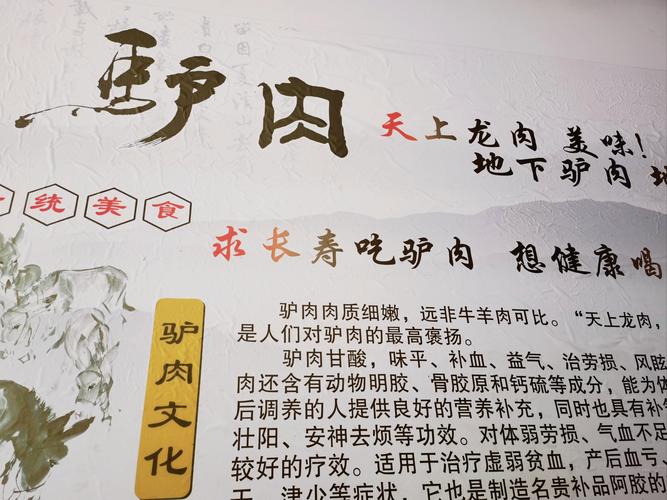 驴肉
天上龙肉 美味!
地下驴肉
统美食
求长寿吃驴肉 想健康喝
驴肉文化
驴肉肉质细嫩，远非牛羊肉可比。“天上龙肉，
是人们对驴肉的最高褒扬。
驴肉甘酸，味平、补血、益气、治劳损、风眩
肉还含有动物明胶、骨胶原和钙硫等成分，能为体
后调养的人提供良好的营养补充，同时也具有补
壮阳、安神去烦等功效。对体弱劳损、气血不足
较好的疗效。适用于治疗虚弱贫血，产后血亏、
干、津少等症状，它也是制造名贵补品阿胶的